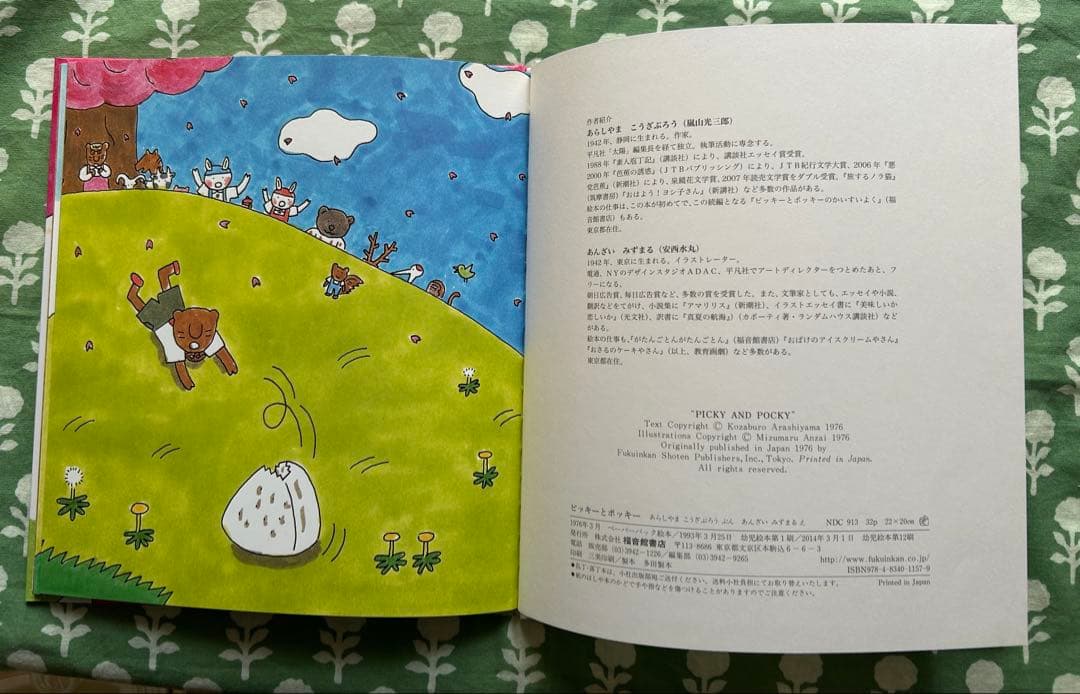 作者紹介
あらしやま こうざぶろう（嵐山光三郎）
1942年、静岡に生まれる。作家。
平凡社「太陽」編集長を経て独立。執筆活動に専念する。
1988年『素人庖丁記』（講談社）により、講談社エッセイ賞受賞。
2000年『芭蕉の誘惑』（JTBパブリッシング）により、JTB紀行文学大賞、2006年『悪
党芭蕉』（新潮社）により、泉鏡花文学賞、2007年読売文学賞をダブル受賞。『旅するノラ猫』
（筑摩書房）『おはよう！ヨシ子さん』（新講社）など多数の作品がある。
絵本の仕事は、この本が初めてで、この続編となる『ピッキーとポッキーのかいすいよく』（福
音館書店）もある。
東京都在住。
あんざい みずまる（安西水丸）
1942年、東京に生まれる。イラストレーター。
電通、NYのデザインスタジオADAC、平凡社でアートディレクターをつとめたあと、フ
リーになる。
朝日広告賞、毎日広告賞など、多数の賞を受賞した。また、文筆家としても、エッセイや小説、
翻訳などをてがけ、小説集に『アマリリス』（新潮社）、イラストエッセイ書に『美味しいか
恋しいか』（光文社）、訳書に『真夏の航海』（カポーティ著・ランダムハウス講談社）などが
ある。
絵本の仕事も、『がたんごとんがたんごとん』（福音館書店）『おばけのアイスクリームやさん』
『おさるのケーキやさん』（以上、教育画劇）など多数がある。
東京都在住。
"PICKY AND POCKY"
Text Copyright © Kozaburo Arashiyama 1976
Illustrations Copyright © Mizumaru Anzai 1976
Originally published in Japan 1976 by
Fukuinkan Shoten Publishers, Inc., Tokyo. Printed in Japan.
All rights reserved.
ピッキーとポッキー あらしやま こうざぶろう ぶん あんざい みずまる え NDC 913 32p 22×20cm
1976年3月 ペーパーバック絵本／1993年3月25日 幼児絵本第1刷／2014年3月1日 幼児絵本第12刷
発行所 株式会社 福音館書店 〒113-8686 東京都文京区本駒込6-6-3
電話 販売部(03)3942-1226／編集部(03)3942-9265 http://www.fukuinkan.co.jp/
印刷 三美印刷／製本 多田製本 ISBN978-4-8340-1157-9
●乱丁・落丁本は、小社出版部宛ご送付ください。送料小社負担にてお取り替えいたします。 Printed in Japan
●紙のはしや本のかどで手や指などを傷つけることがありますのでご注意ください。